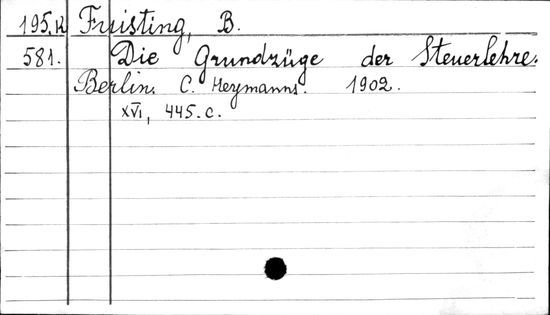 195.K Fuisting, B.
581. Die Grundzüge der Steuerlehre.
Berlin. C. Heymanns. 1902.
XVI, 445.c.